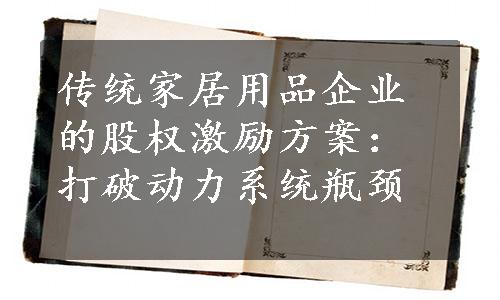 传统家居用品企业
的股权激励方案：
打破动力系统瓶颈